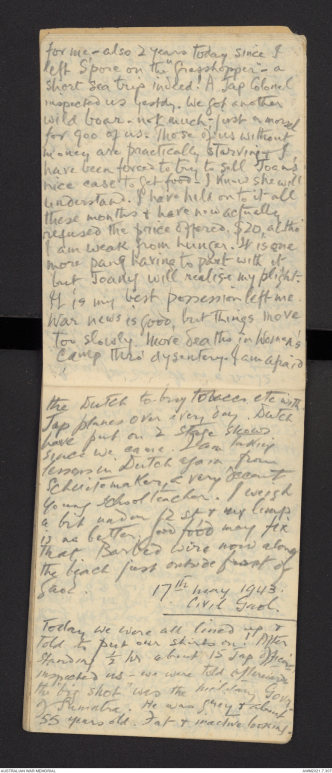 for me - also 2 years today since I
left S'pore on the "Grasshopper" - a
short sea trip indeed! A Jap Colonel
inspected us yestdy. We got another
wild boar - not much - just a morsel
for 900 of us. Those of us without
money are practically starving. I
have been forced to try to sell Joan's
nice case to get food. I know she will
understand. I have held on to it all
these months & have now actually
refused the price offered, $20, altho
I am weak from hunger. It is one
more pang having to part with it
but Joany will realise my plight.
It is my best possession left me.
War news is good, but things move
too slowly. More deaths in Women's
Camp thro dysentery. I am afraid
the Dutch to buy tobacco etc with.
Jap planes over every day. Dutch
have put on 2 stage shows
since we came. I am taking
lessons in Dutch again from
a very decent
young schoolteacher. I weigh
a bit under 12 st & my limp
is no better. Good food may fix
that. Barbed wire now along
the beach just outside front of
Gaol.
17th May 1943.
Civil Gaol.
Today we were all lined up &
told to put our shirts on! After
standing ½ hr about 15 Jap Officers
inspected us - we were told afterwards
the "big shot" was the military Govr.
of Sumatra. He was grey & about
55 years old. Fat & inactive looking.
AUSTRALIAN WAR MEMORIAL